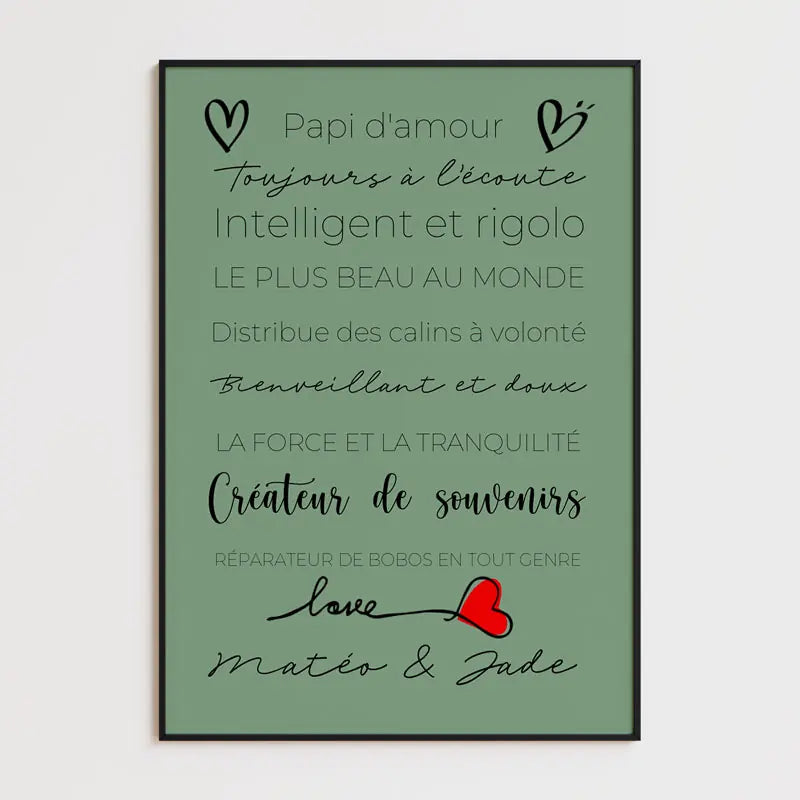 Papi d'amour
Toujours à l'écoute
Intelligent et rigolo
LE PLUS BEAU AU MONDE
Distribue des calins à volonté
Bienveillant et doux
LA FORCE ET LA TRANQUILITÉ
Créateur de souvenirs
RÉPARATEUR DE BOBOS EN TOUT GENRE
love
Matéo & Jade